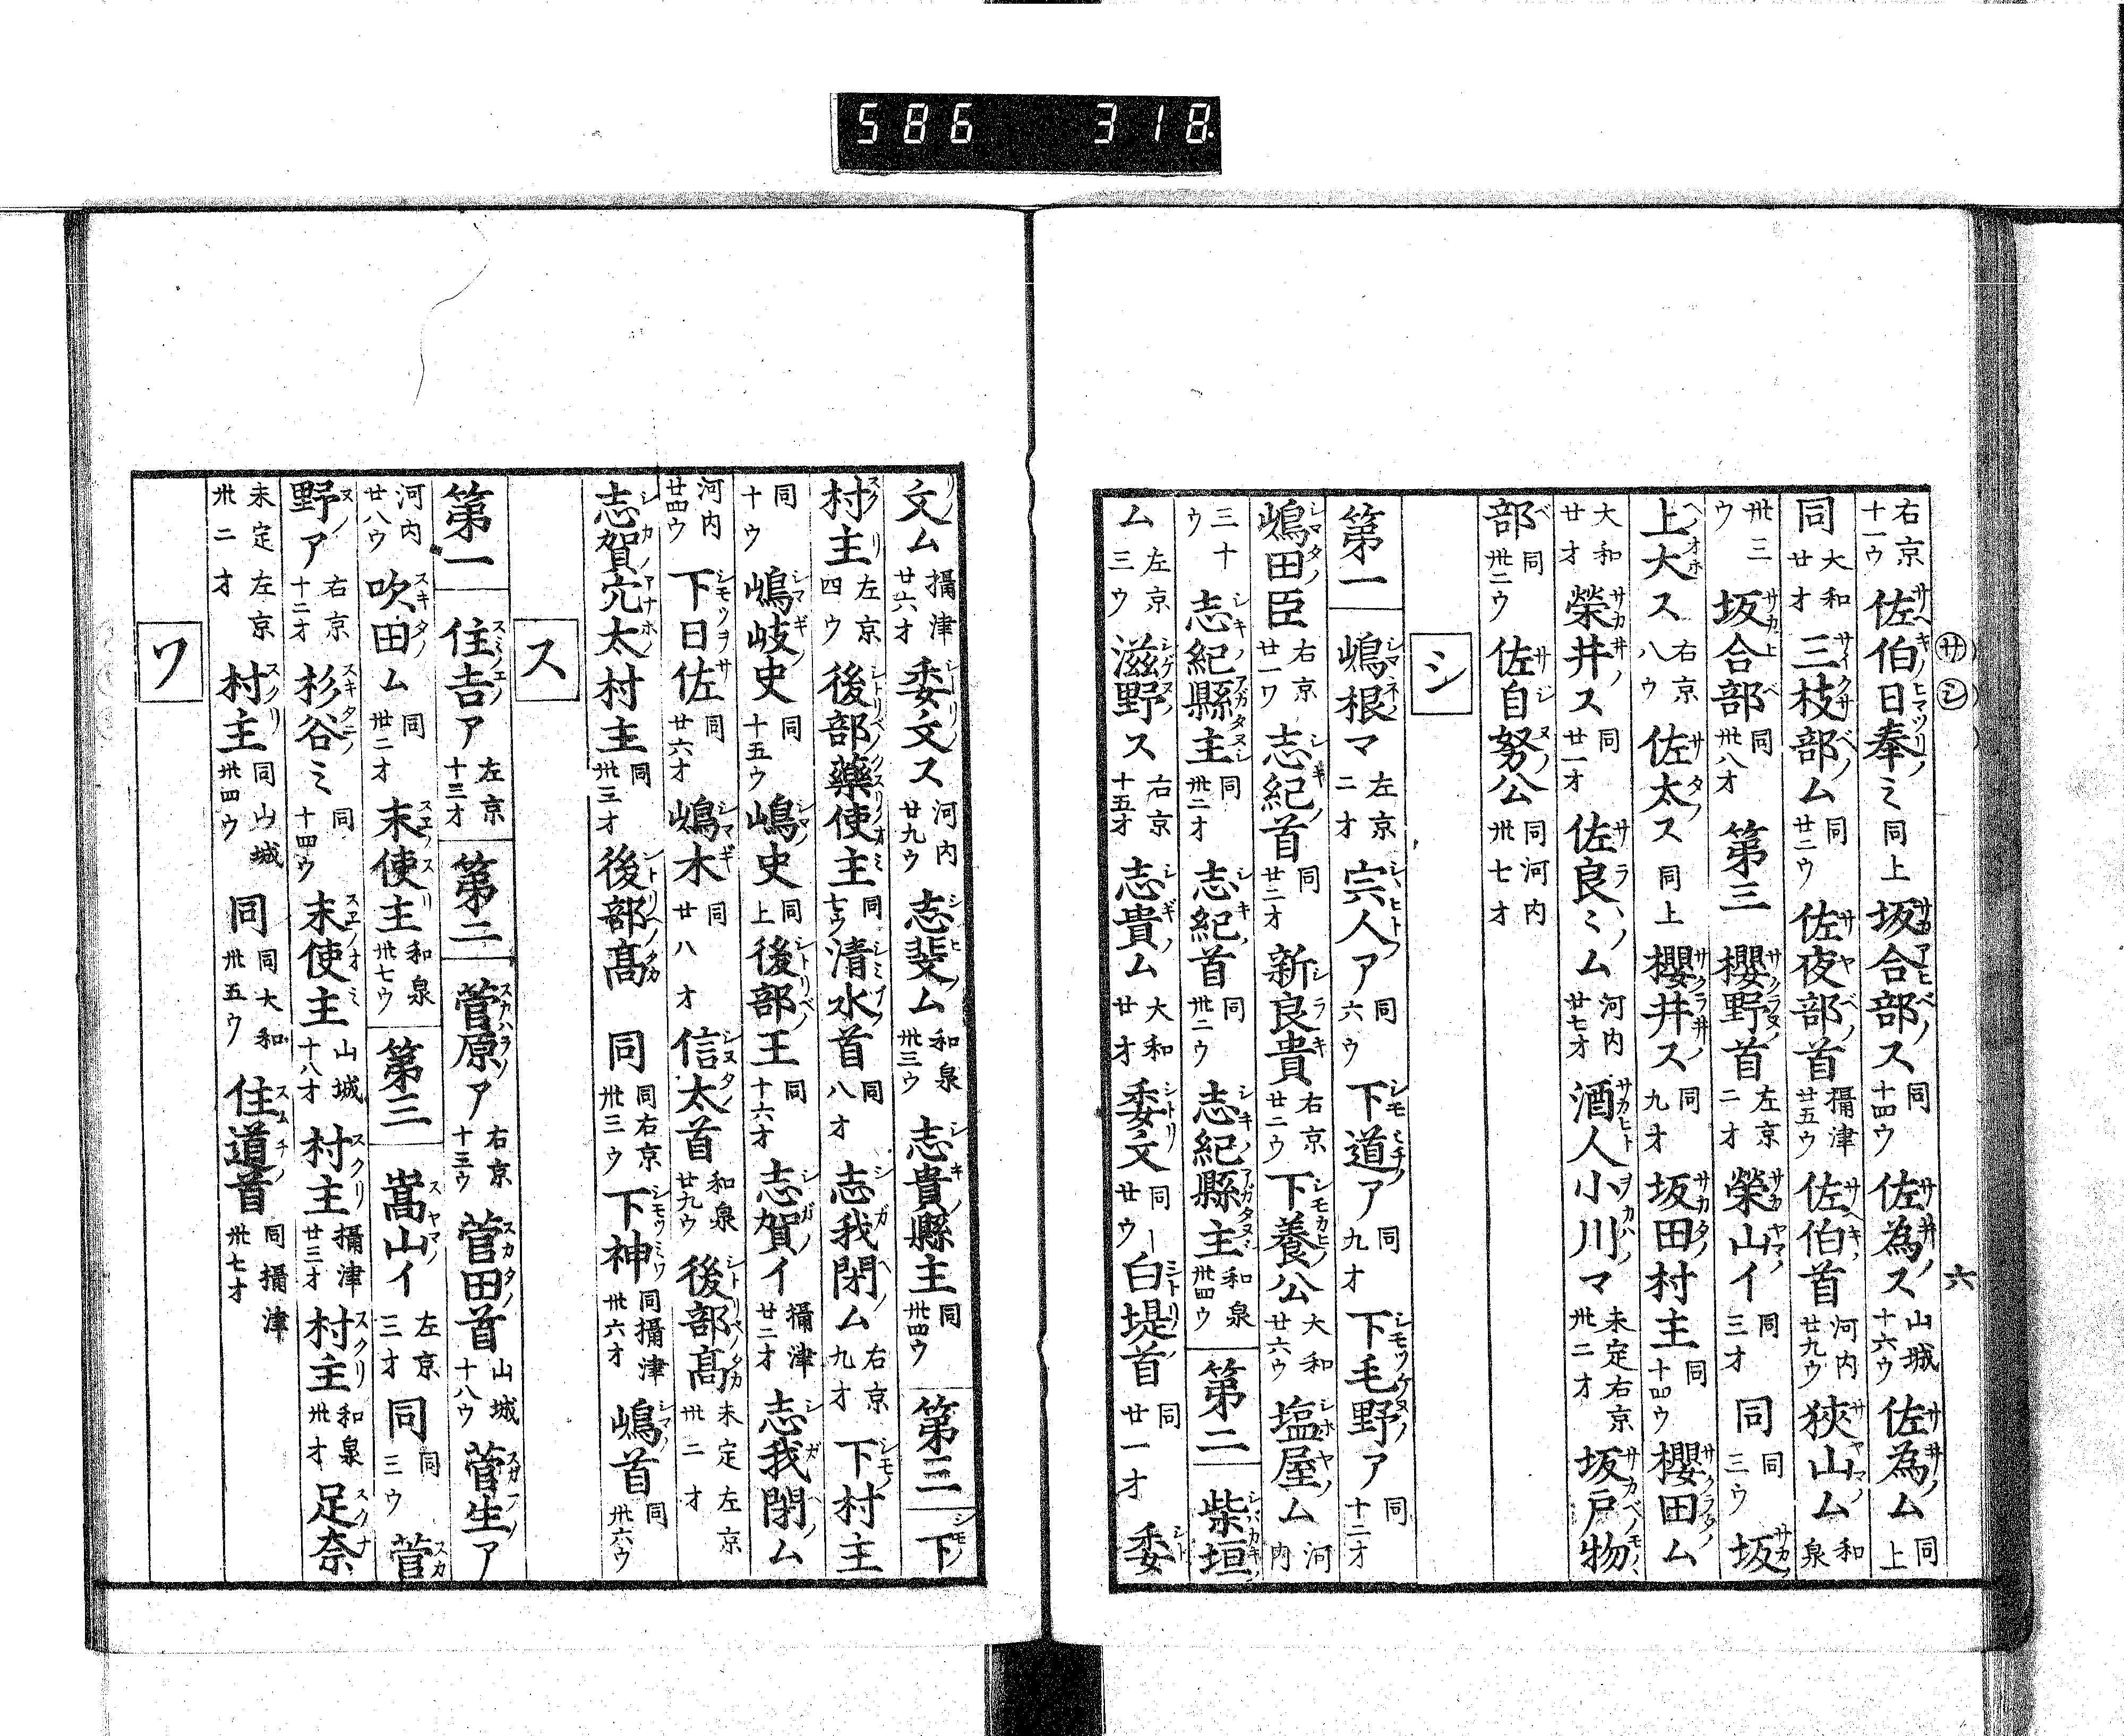 586 318
サ シ 六
右京十一ウ 佐伯日奉ミ 同上 坂合部ノス 同十四ウ 佐為ス 山城十六ウ 佐為ム 同上
同 大和廿オ 三枝部ム 同廿二ウ 佐夜部首 攝津廿五ウ 佐伯首 河内廿九ウ 狹山ム 和泉
卅三ウ 坂合部 同卅八オ 第三 櫻野首 左京二オ 榮山イ 同三オ 同 同三ウ 坂
上大ス 右京八ウ 佐太ス 同上 櫻井ス 同九オ 坂田村主 同十四ウ 櫻田ム
大和廿オ 榮井ス 同廿一オ 佐良ミム 河内廿七オ 酒人小川マ 未定右京卅二オ 坂戸物
部 同卅二ウ 佐自努公 同河内卅七オ
シ
第一 嶋根マ 左京二オ 宗人ア 同六ウ 下道ア 同九オ 下毛野ア 同十二オ
嶋田臣 右京廿一ワ 志紀首 同廿二オ 新良貴 右京廿二ウ 下養公 大和廿六ウ 塩屋ム 河内
三十ウ 志紀縣主 同卅二オ 志紀首 同卅二ウ 志紀縣主 和泉卅四ウ 第二 柴垣
ム 左京三ウ 滋野ス 右京十五オ 志貴ム 大和廿オ 委文 同廿ウ 白堤首 同廿一オ 委
文ム 攝津廿六オ 委文ス 河内廿九ウ 志斐ム 和泉卅三ウ 志貴縣主 同卅四ウ 第三 下
村主 左京四ウ 後部藥使主 同七ウ 清水首 同八オ 志我閉ム 右京九オ 下村主
同十ウ 嶋岐史 同十五ウ 嶋史 同上 後部王 同十六オ 志賀イ 攝津廿二オ 志我閉ム
河内廿四ウ 下日佐 同廿六オ 嶋木 同廿八オ 信太首 和泉廿九ウ 後部髙 未定左京卅二オ
志賀穴太村主 同卅三オ 後部髙 同 同右京卅三ウ 下神 同攝津卅六オ 嶋首 同卅六ウ
ス
第一 住吉ア 左京十三オ 第二 菅原ア 右京十三ウ 菅田首 山城十八ウ 菅生ア
河内廿八ウ 吹田ム 同卅二オ 末使主 和泉卅七ウ 第三 嵩山イ 左京三オ 同 同三ウ 菅
野ア 右京十二オ 杉谷ミ 同十四ウ 末使主 山城十八オ 村主 攝津廿三オ 村主 和泉卅オ 足奈
未定左京卅二オ 村主 同山城卅四ウ 同 同大和卅五ウ 住道首 同攝津卅七オ
ワ